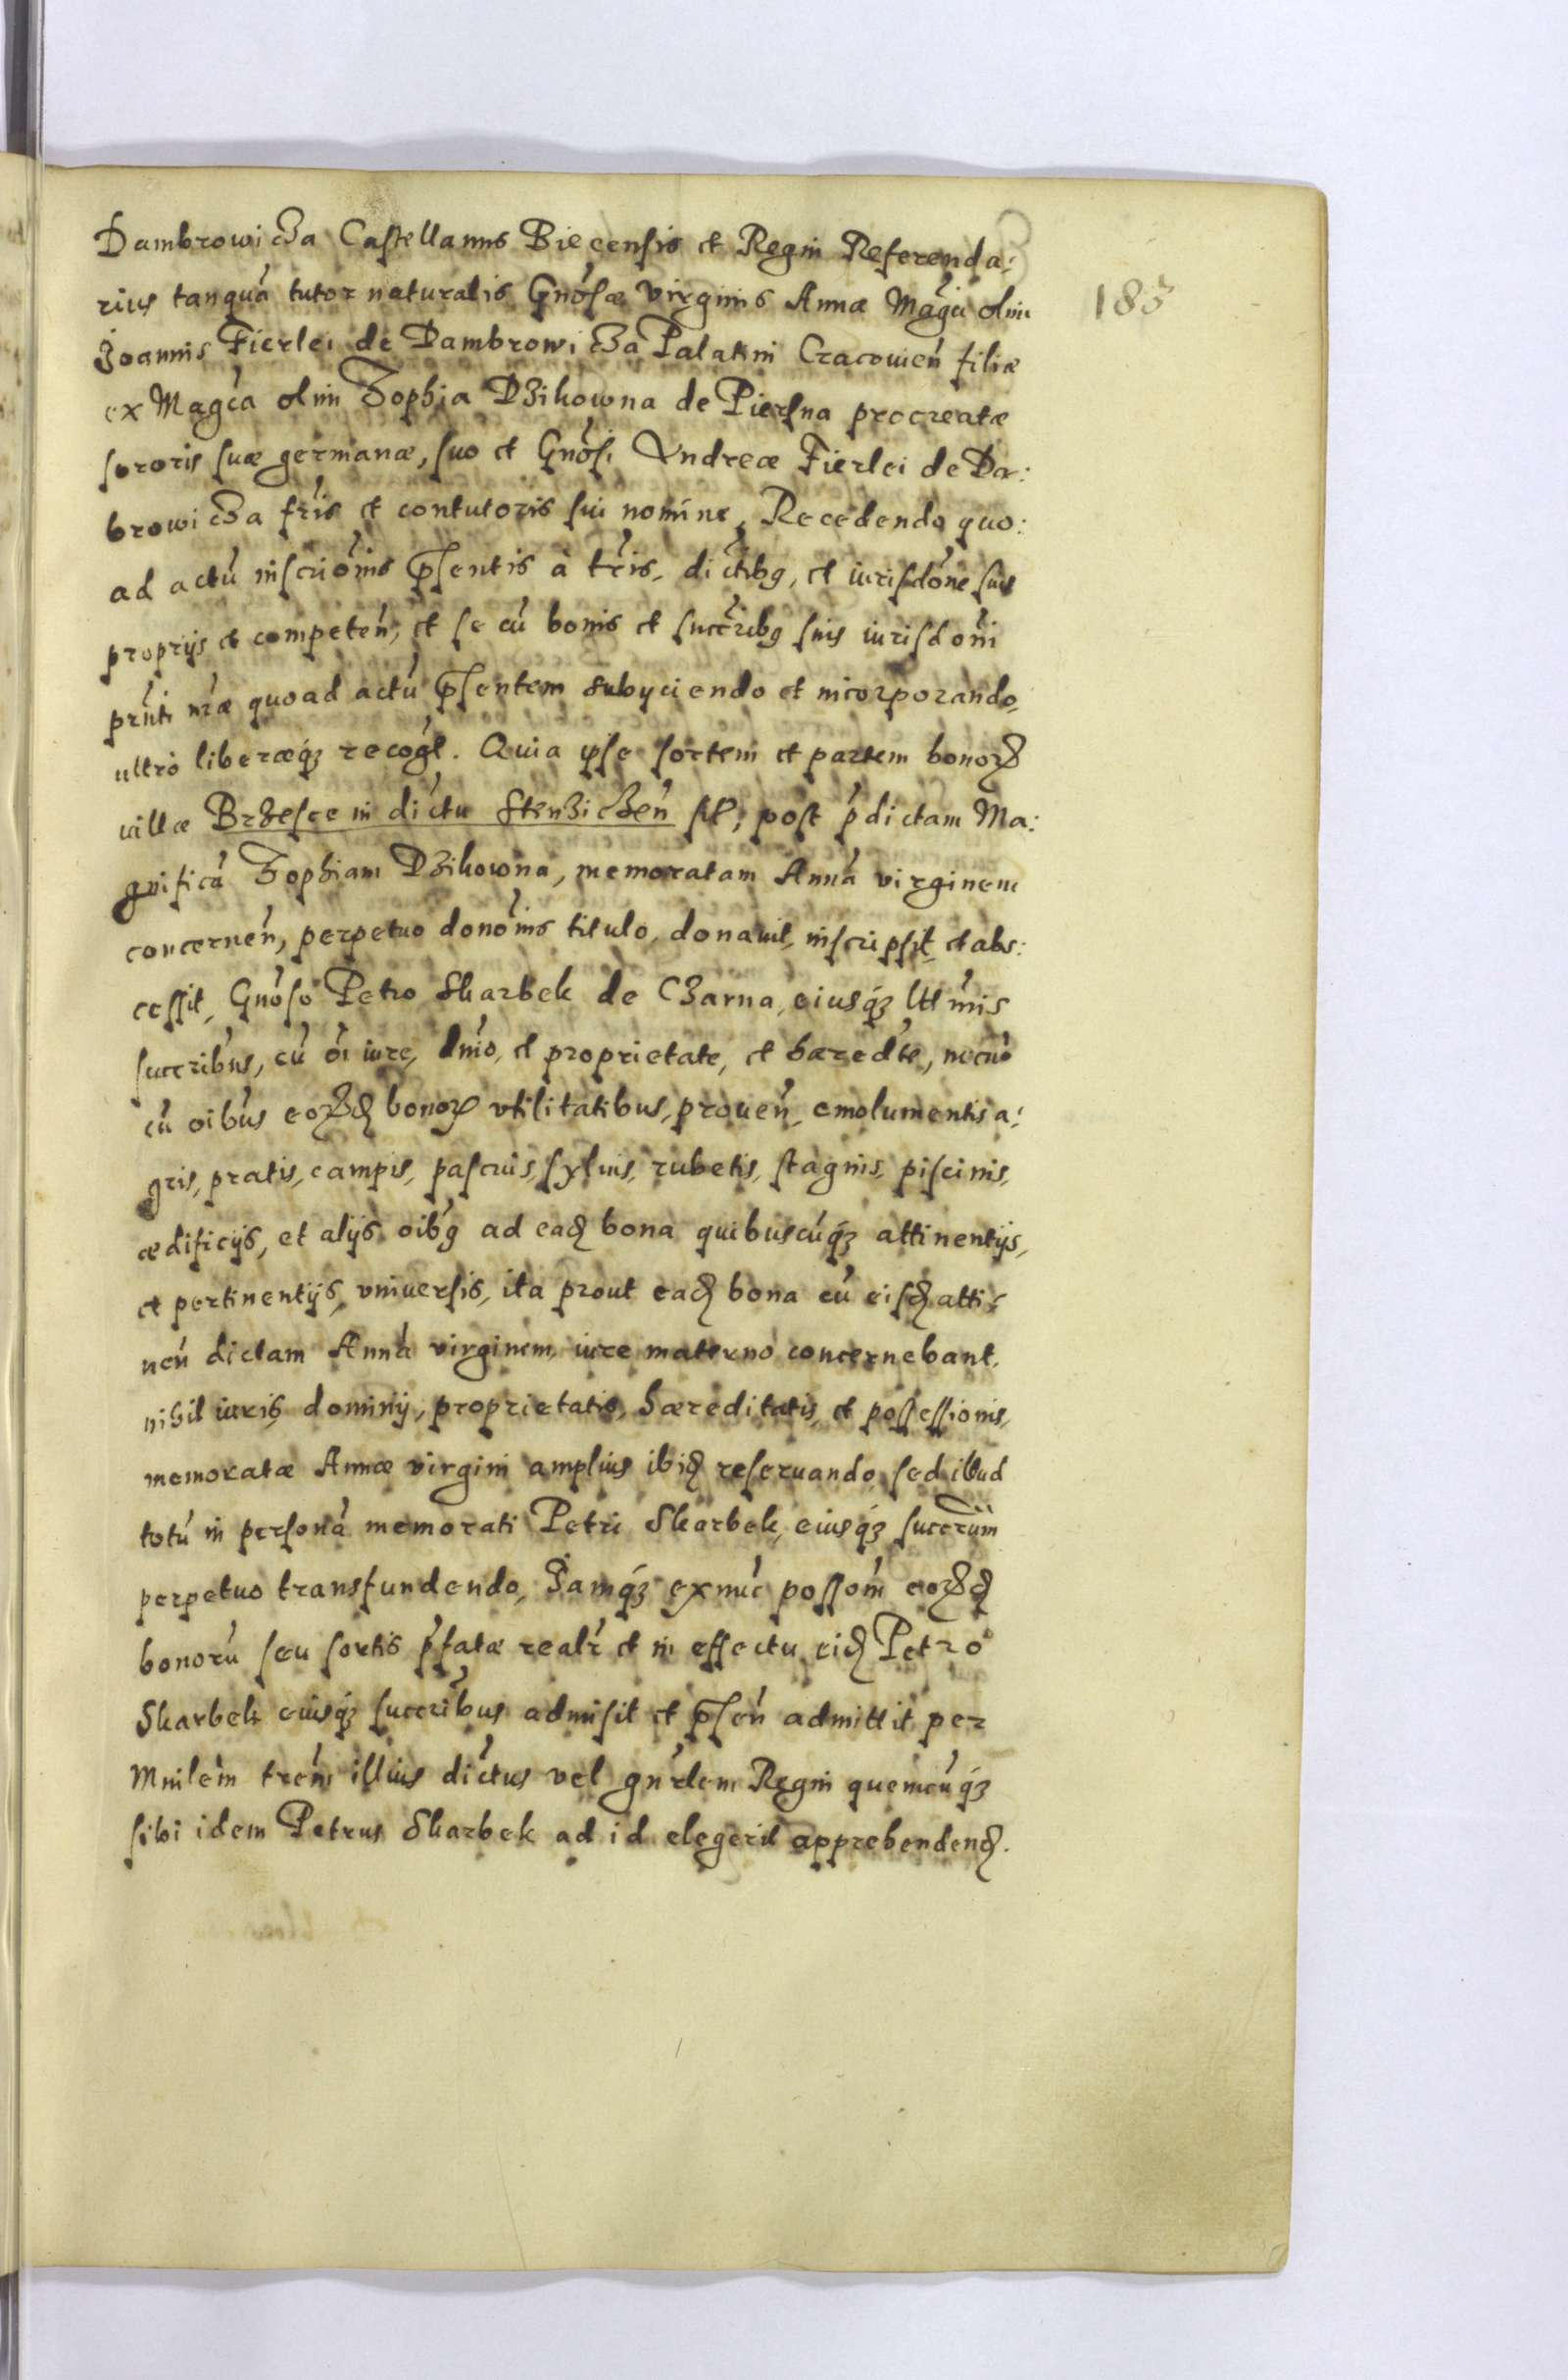 Dambrowicza Castellanus Biecensis et Regni Referenda:
rius tanquã tutor naturalis Gnõsæ virginis Annæ Magci olim
Joannis Fierlei de Dambrowicza Palatini Cracovien̄ filiæ
ex Magca olim Zophia Dzikowna de Piersna procreatæ
sororis suæ germanæ, suo et Gnõsi Andreæ Fierlei de Da:
browicza fris et contutoris sui nomine, Recedendo quo:
ad actũ inscriõnis p̃sentis à tr̃is, dictibq, et iurisdõne suis
proprijs et competeñ, et se cũ bonis et succr̃ibq suis iurisdõni
pr̃nti nr̃æ quoad actũ p̃sentem subyciendo et incorporando,
ultrò liberæq́ȝ recogt. Quia ipse sortem et partem bonorꝝ
villæ Brzesce in dictu Stenzicȝeñ sit̃, post p̃dictam Ma:
gnificã Zophiam Dzikowna, memoratam Annã virginem
concerneñ, perpetuo donõnis titulo, donavit, inscripsit, et abs:
cessit, Gnõso Petro Skarbek de Czarna, eiusq́ȝ lttĩmis
succribus, cũ õi iure, dnĩo, et proprietate, et hæredte, necnõ
cũ oibus eorꝝđ bonorꝝ vtilitatibus, proueñ, emolumentis a:
gris, pratis, campis, pascuis, syluis, rubetis, stagnis, piscinis,
ædificijs, et alijs oibq ad eađ bona quibuscũq́ȝ attinentijs,
et pertinentijs, vniuersis, ita prout eađ bona cũ eisđ atti:
neñ dictam Annã virginem, iure materno concernebant,
nihil iuris, dominij, proprietatis, hæreditatis, et possessionis,
memoratæ Annæ virgini amplius ibiđ reseruando, sed illud
totũ in personã memorati Petri Skarbek, eiusq́ȝ succrum
perpetuo transfundendo, Jamq́ȝ exnũc possõni eorꝝđ
bonorũ seu sortis p̃fatæ realr̃ et in effectu eiđ Petro
Skarbek eiusq́ȝ succribus admisit et p̃señ admittit per
Mnilem trem illius dictus vel gnr̃lem Regni quemcũq́ȝ
sibi idem Petrus Skarbek ad id elegerit apprehendenđ.
183